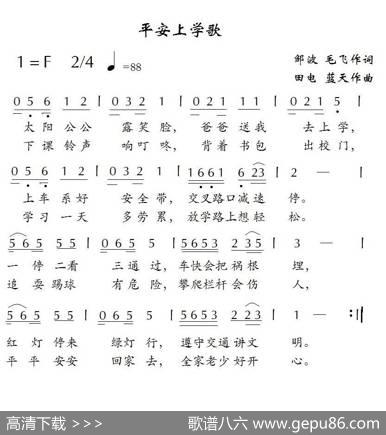 平安上学歌
1=F 2/4 ♩=88
邹波 毛飞作词
田电 蓝天作曲
0 5 6 1 2 | 0 1 2 1 0 | 0 2 1 1 5 | 0 2 1 1 1 |
太阳公公 露笑脸， 爸爸送我 去上学，
下课铃声 响叮咚， 背着书包 出校门，
0 5 6 1 2 | 0 6 5 3 | 1 6 6 1 6 2 3 | 1 — |
上车系好 安全带， 交叉路口减速 停。
学习一天 多劳累， 放学路上想轻 松。
5 6 5 5 | 0 6 5 5 | 5 6 5 3 2 3 5 | 2 — |
一停二看 三通过， 车快会把祸根 埋，
追耍踢球 有危险， 攀爬栏杆会伤 人，
0 5 6 5 5 | 0 6 5 5 | 5 6 5 3 2 2 3 | 1 — :‖
红灯停来 绿灯行， 遵守交通讲文 明。
平平安安 回家去， 全家老少好开 心。
高清下载 >>>
歌谱八六 www.gepu86.com